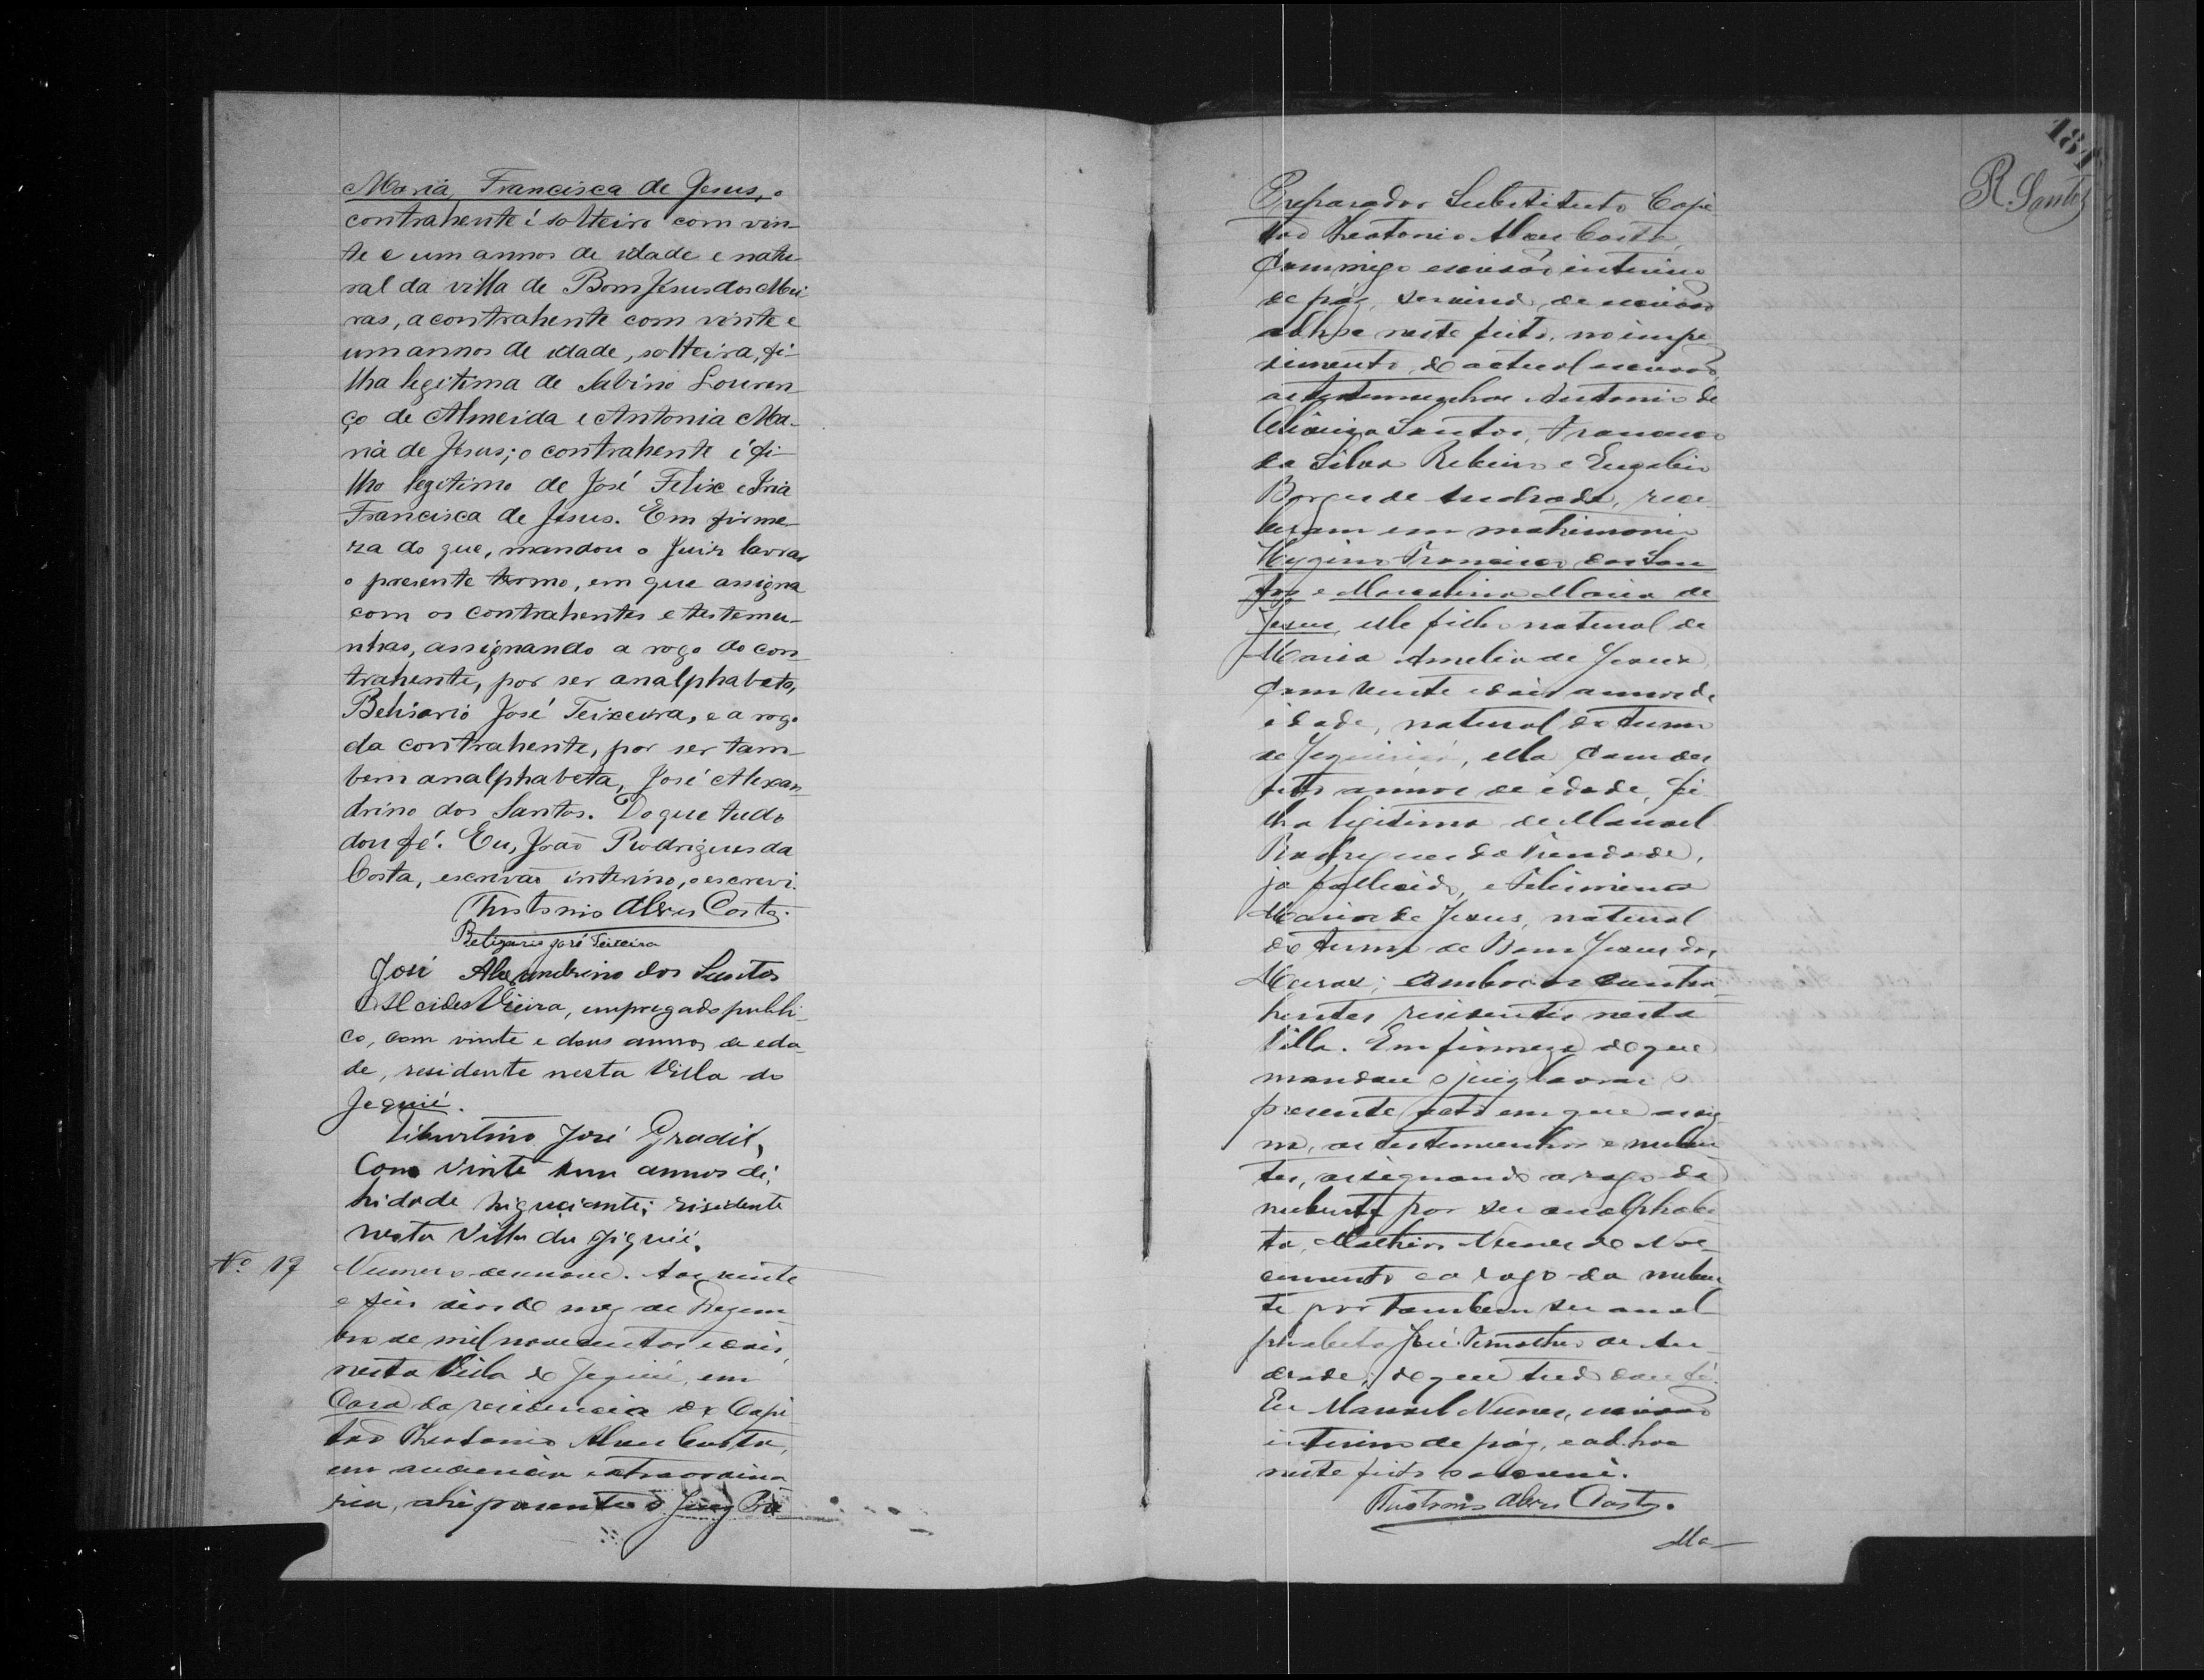 Maria Francisca de Jesus, o
contrahente é solteiro com vin-
te e um annos de idade e natu-
ral da villa de Bom Jesus dos Mei-
ras, a contrahente com vinte e
um annos de idade, solteira, fi-
lha legitima de Sabino Louren-
ço de Almeida e Antonia Ma-
ria de Jesus; o contrahente é fi-
lho legitimo de José Felix e Iria
Francisca de Jesus. Em firme-
za do que, mandou o Juiz lavrar
o presente termo, em que assigna
com os contrahentes e testemu-
nhas, assignando a rogo do con-
trahente, por ser analphabeto,
Belisario José Teixeira, e a rogo
da contrahente, por ser tam-
bem analphabeta, José Alexan-
drino dos Santos. Do que tudo
dou fé. Eu, João Rodrigues da
Costa, escrivão interino, o escrevi.
Theotonio Alves Costa.
Belizario José Teixeira
José Alexandrino dos Santos
Alcides Vieira, empregado publi-
co, com vinte e dous annos de eda-
de, residente nesta Villa de
Jequié.
Tiburtino José Gradil,
Com vinte hum annos di,
hidade niguciante; risidente
nesta Villa du Jiquié.
Nº 19 Numero desenove. Aos vinte
e seis dias do mez de Dezem-
bro de mil novecentos e dois,
nesta Villa de Jequié, em
Casa da residencia do Capi-
tão Theotonio Alves Costa,
em audiencia extraordina-
ria, ahi presente o Juiz Pre
184
R. Santos
Preparador Substituto Capi-
tão Theotonio Alves Costa,
Commigo escrivão interino
de paz, servindo de escrivão
ad hoc neste feito, no impe-
dimento do actual escrivão,
as testemunhas Antonio de
Santos, Francisco
da Silva Ribeiro e
Borges de Andrade, rece-
beram em matrimonio
Hygino Francisco dos San-
tos e Marcelina Maria de
Jesus, elle filho natural de
Maria Amelia de Jesus,
Com vinte e dois annos de
idade, natural do termo
de Jequiriçá, ella Com des
oito annos de idade, fi-
lha legitima de Manoel
Rodrigues da Trindade,
já fallecido, e
Maria de Jesus, natural
do termo de Bom Jesus dos
Meiras; ambos os contra-
hentes residentes nesta
Villa. Em firmeza do que
mandou o juiz lavrar o
presente acto em que assig-
na, as testemunhas e nuben-
tes, assignando a rogo do
nubente por ser analphabe-
to, Mathias Nunes do Nas-
cimento e a rogo da nuben-
te por tambem ser anal-
phabeta José Timotheo de An-
drade; do que tudo dou fé.
Eu Manoel Nunes, escrivão
interino de paz, e ad hoc
neste feito o escrevi.
Theotonio Alves Costa.
Ma-